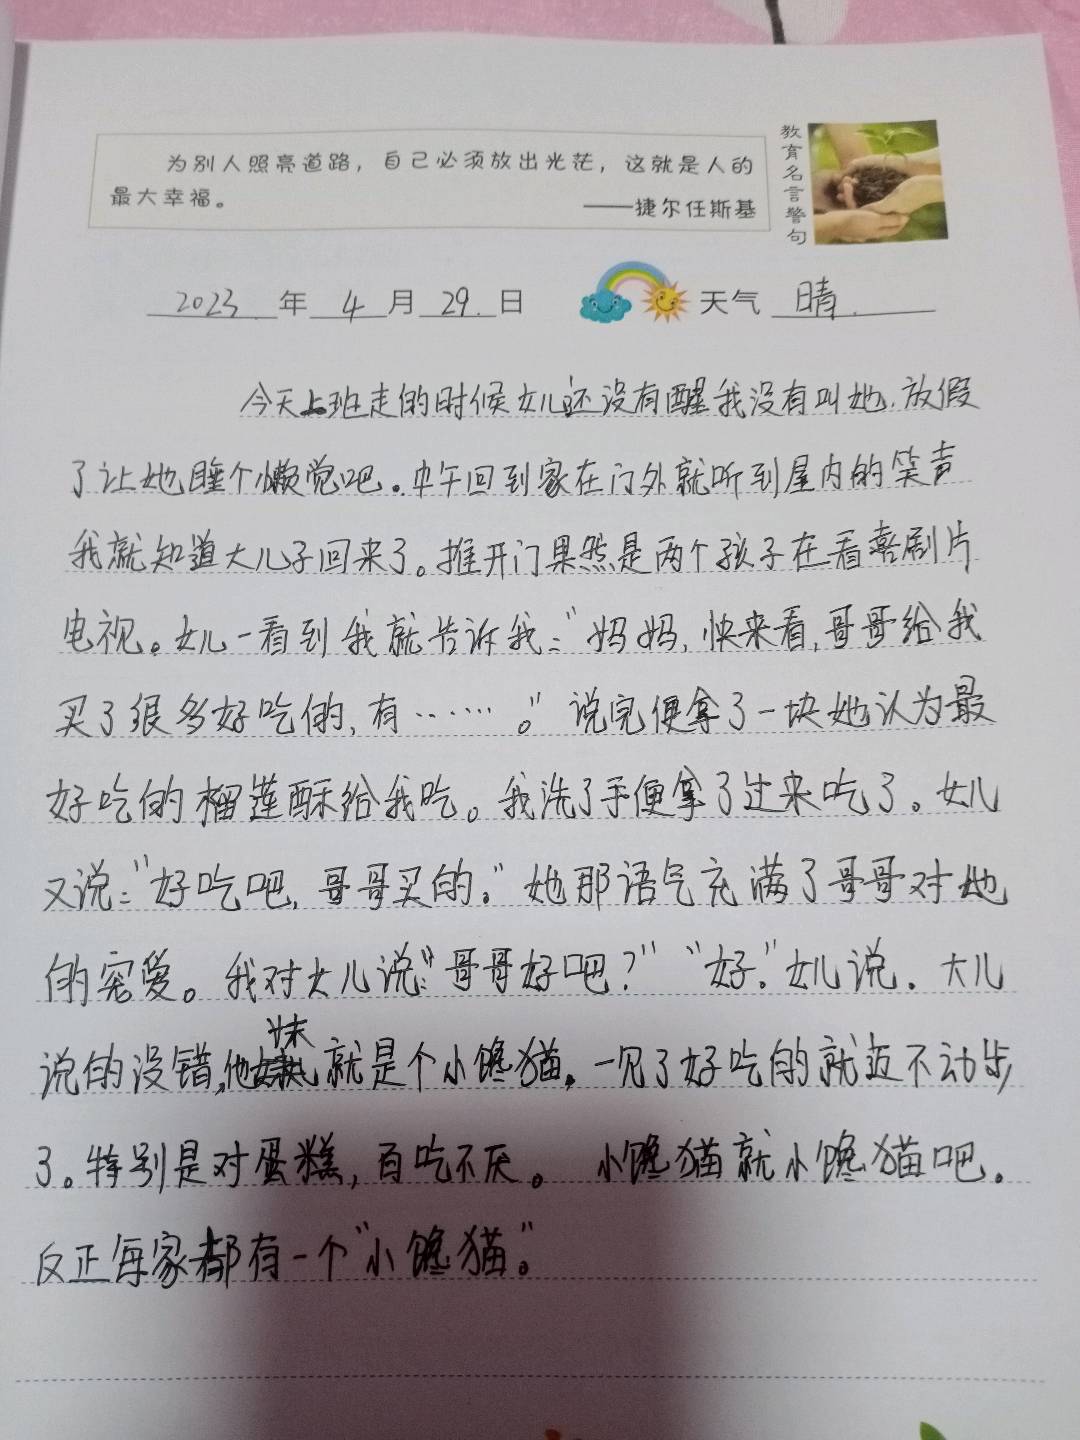 为别人照亮道路，自己必须放出光芒，这就是人的
最大幸福。
——捷尔任斯基
教育名言警句
2023年4月29日 天气 晴.
今天上班走的时候女儿还没有醒我没有叫她.放假
了让她睡个懒觉吧。中午回到家在门外就听到屋内的笑声
我就知道大儿子回来了。推开门果然是两个孩子在看喜剧片
电视。女儿一看到我就告诉我："妈妈,快来看,哥哥给我
买了很多好吃的,有……。"说完便拿了一块她认为最
好吃的榴莲酥给我吃。我洗了手便拿了过来吃了。女儿
又说："好吃吧,哥哥买的。"她那语气充满了哥哥对她
的宠爱。我对女儿说："哥哥好吧?""好。"女儿说。大儿
说的没错,他妹就是个小馋猫。一见了好吃的就迈不动步
了。特别是对蛋糕,百吃不厌。小馋猫就小馋猫吧。
反正每家都有一个"小馋猫。"